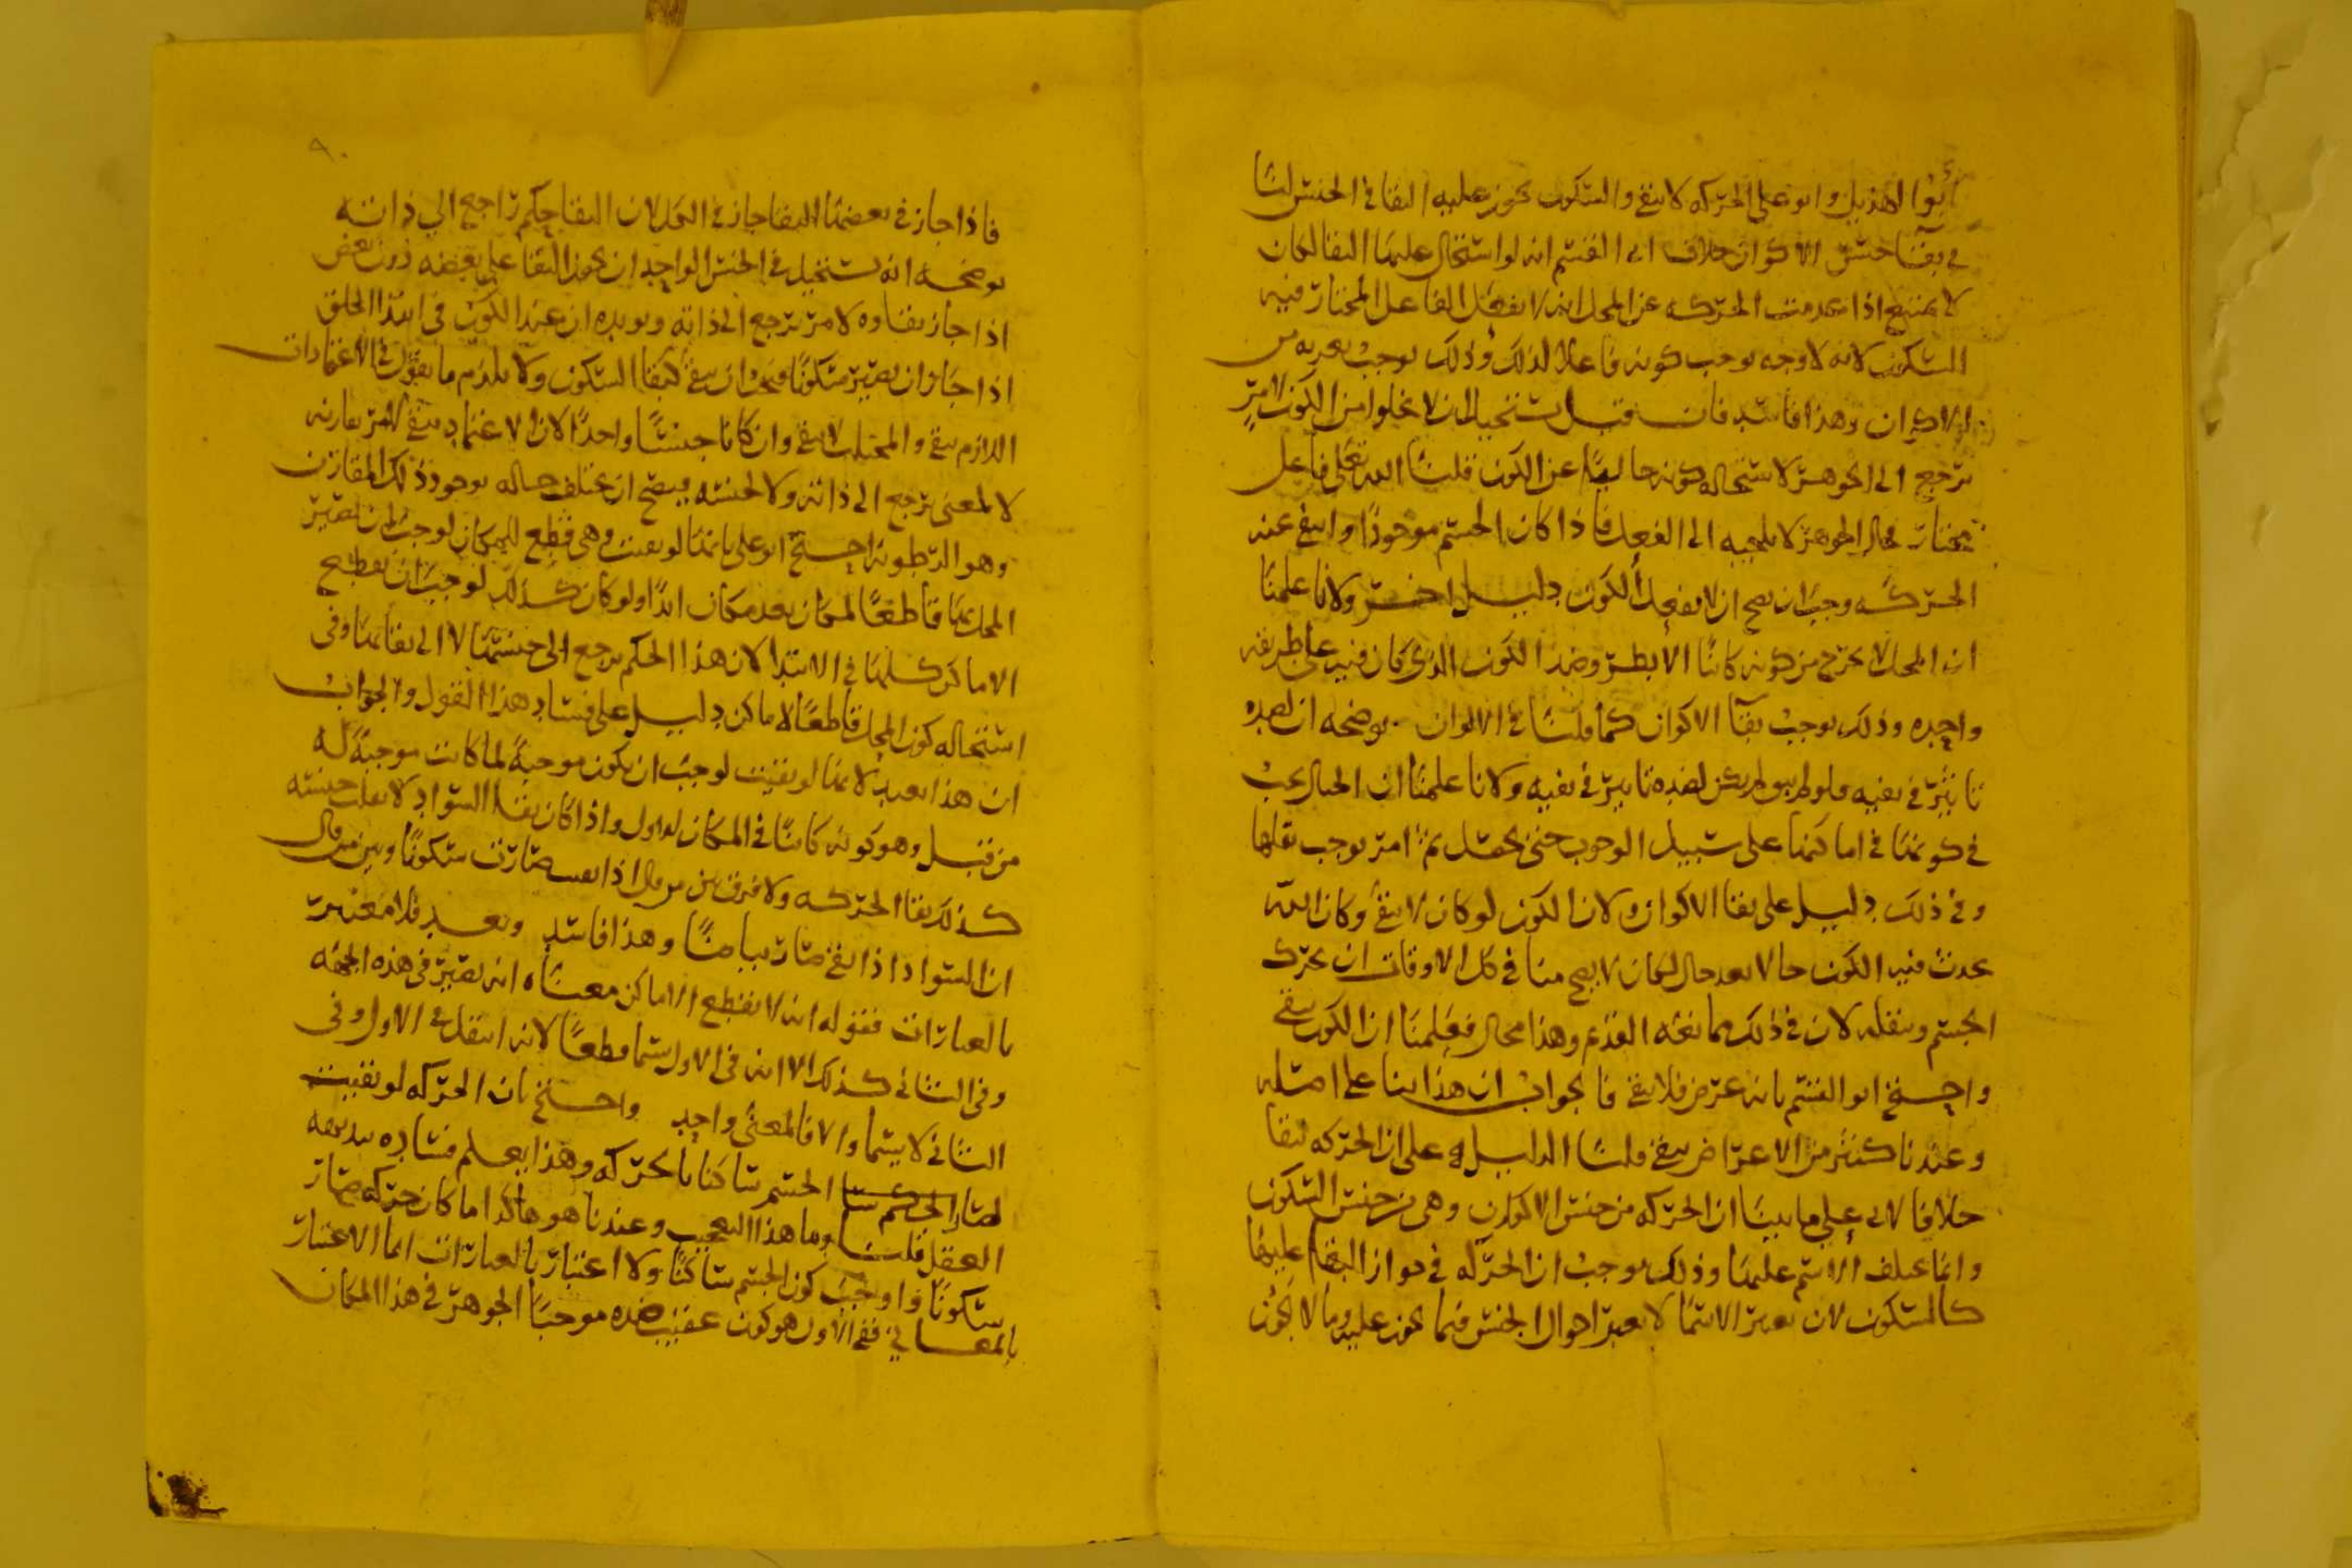 أبوا الهذيل وابو علي الحركه لا تبقى والسكون يجوز عليه البقا في الجنس لنا
في بقا جنس الاكوان خلاف ابي القسم انه لو استحال عليها البقا لكان
لا يمتنع اذا عدمت الحركه عن المحل انه لا يفعل الفاعل المختار فيه
السكون لانه لا وجه يوجب كونه فاعلا لذلك وذلك يوجب تعريه من
الاكوان وهذا فاسد فان قيل يستحيل ان لا يخلوا من الكون لامر
يرجع الى الجوهر لاستحاله كونه خاليا عن الكون قلنا الله تعلى فاعل
مختار فحال الجوهر لا يلجيه الى الفعل فاذا كان الجسم موجودا وانتفى عنه
الحركه وجب ان يصح ان لا يفعل الكون دليل اخر ولانا علمنا
ان المحل لا يخرج من كونه كائنا الا بطرو ضد الكون الذي كان فيه على طريقه
واحده وذلك يوجب بقآ الاكوان كما قلنا في الالوان يوضحه ان لضده
تاثير في نفيه ولو لم يبق لم يكن لضده تاثير في نفيه ولانا علمنا ان الجبال يجب
في كونها في اماكنها على سبيل الوجوب حتى يحصل ثم امر يوجب نقلها
وفي ذلك دليل على بقا الاكوان ولان الكون لو كان لا يبقى وكان الله
يحدث فيه الكون حالا بعد حال لكان لا يصح منا في كل الاوقات ان نحرك
الجسم وننقله لان في ذلك ممانعه القديم وهذا محال فعلمنا ان الكون يبقى
واحتج ابو القسم بانه عرض فلا يبقى فالجواب ان هذا بنا على امثله
وعندنا كثير من الاعراض يبقى قلنا الدليل على ان الحركه تبقا
خلافا لابي علي ما بينا ان الحركه من جنس الاكوان وهي من جنس السكون
وانما يختلف الاسم عليهما وذلك يوجب ان الحركه في جواز البقا عليها
كالسكون لان تغير الاسما لا يغير احوال الجنس فيما يجوز عليه وما لا يجوز
٩٠
فاذا جاز في بعضها البقا جاز في الكل لان البقا حكم راجع الى ذاته
يوضحه انه يستحيل في الجنس الواحد ان يجوز البقا على بعضه دون بعض
اذا جاز بقاوه لامر يرجع الى ذاته ويويده ان عند الكون في ابتدا الخلق
اذا جاز ان يصير سكونا فيجوز ان يبقى كبقا السكون ولا يلزم ما يقول في الاعتمادات
اللازم يبقى والمجتلب لا يبقى وان كانا جنسا واحدا لان الاعتماد يبقى لامر يقارنه
لا لمعنى يرجع الى ذاته ولا لجنسه فيصح ان يختلف حاله بوجود ذلك المقارن
وهو الرطوبه احتج ابو علي بانها لو بقيت وهي قطع للمكان لوجب ان يصير
المحل بها قاطعا لمكان بعد مكان ابدا ولو كان كذلك لوجب ان يقطع
الاماكن كلها في الابتدا لان هذا الحكم يرجع الى جنسها لا الى بقائها وفي
استحاله كون المحل قاطعا لاماكن دليل على فساد هذا القول والجواب
ان هذا بعيد لانها لو بقيت لوجب ان يكون موجبة لما كانت موجبة له
من قبل وهو كونه كائنا في المكان الاول واذا كان بقا السواد لا يقلب جنسه
كذلك بقا الحركه ولا فرق بين من قال اذا بقيت صارت سكونا وبين من قال
ان السواد اذا بقي صار بياضا وهذا فاسد وبعد فلا معتبر
بالعبارات فقوله انه لا يقطع الاماكن معناه انه يصير في هذه الجهه
وفي الثاني كذلك الا انه في الاول يسما قطعا لانه انتقل في الاول وفي
الثاني لا يسما والا فالمعنى واحد واحتج بان الحركه لو بقيت
لصار الجسم ساكنا بالحركه وهذا يعلم فساده ببديهه
العقل قلنا وما هذا التعجب وعندنا هو هاكذا ما كان حركه صار
سكونا واوجب كون الجسم ساكنا ولا اعتبار بالعبارات انما الاعتبار
بالمعاني ففي الاول هو كون عقيب ضده موجبا الجوهر في هذا المكان